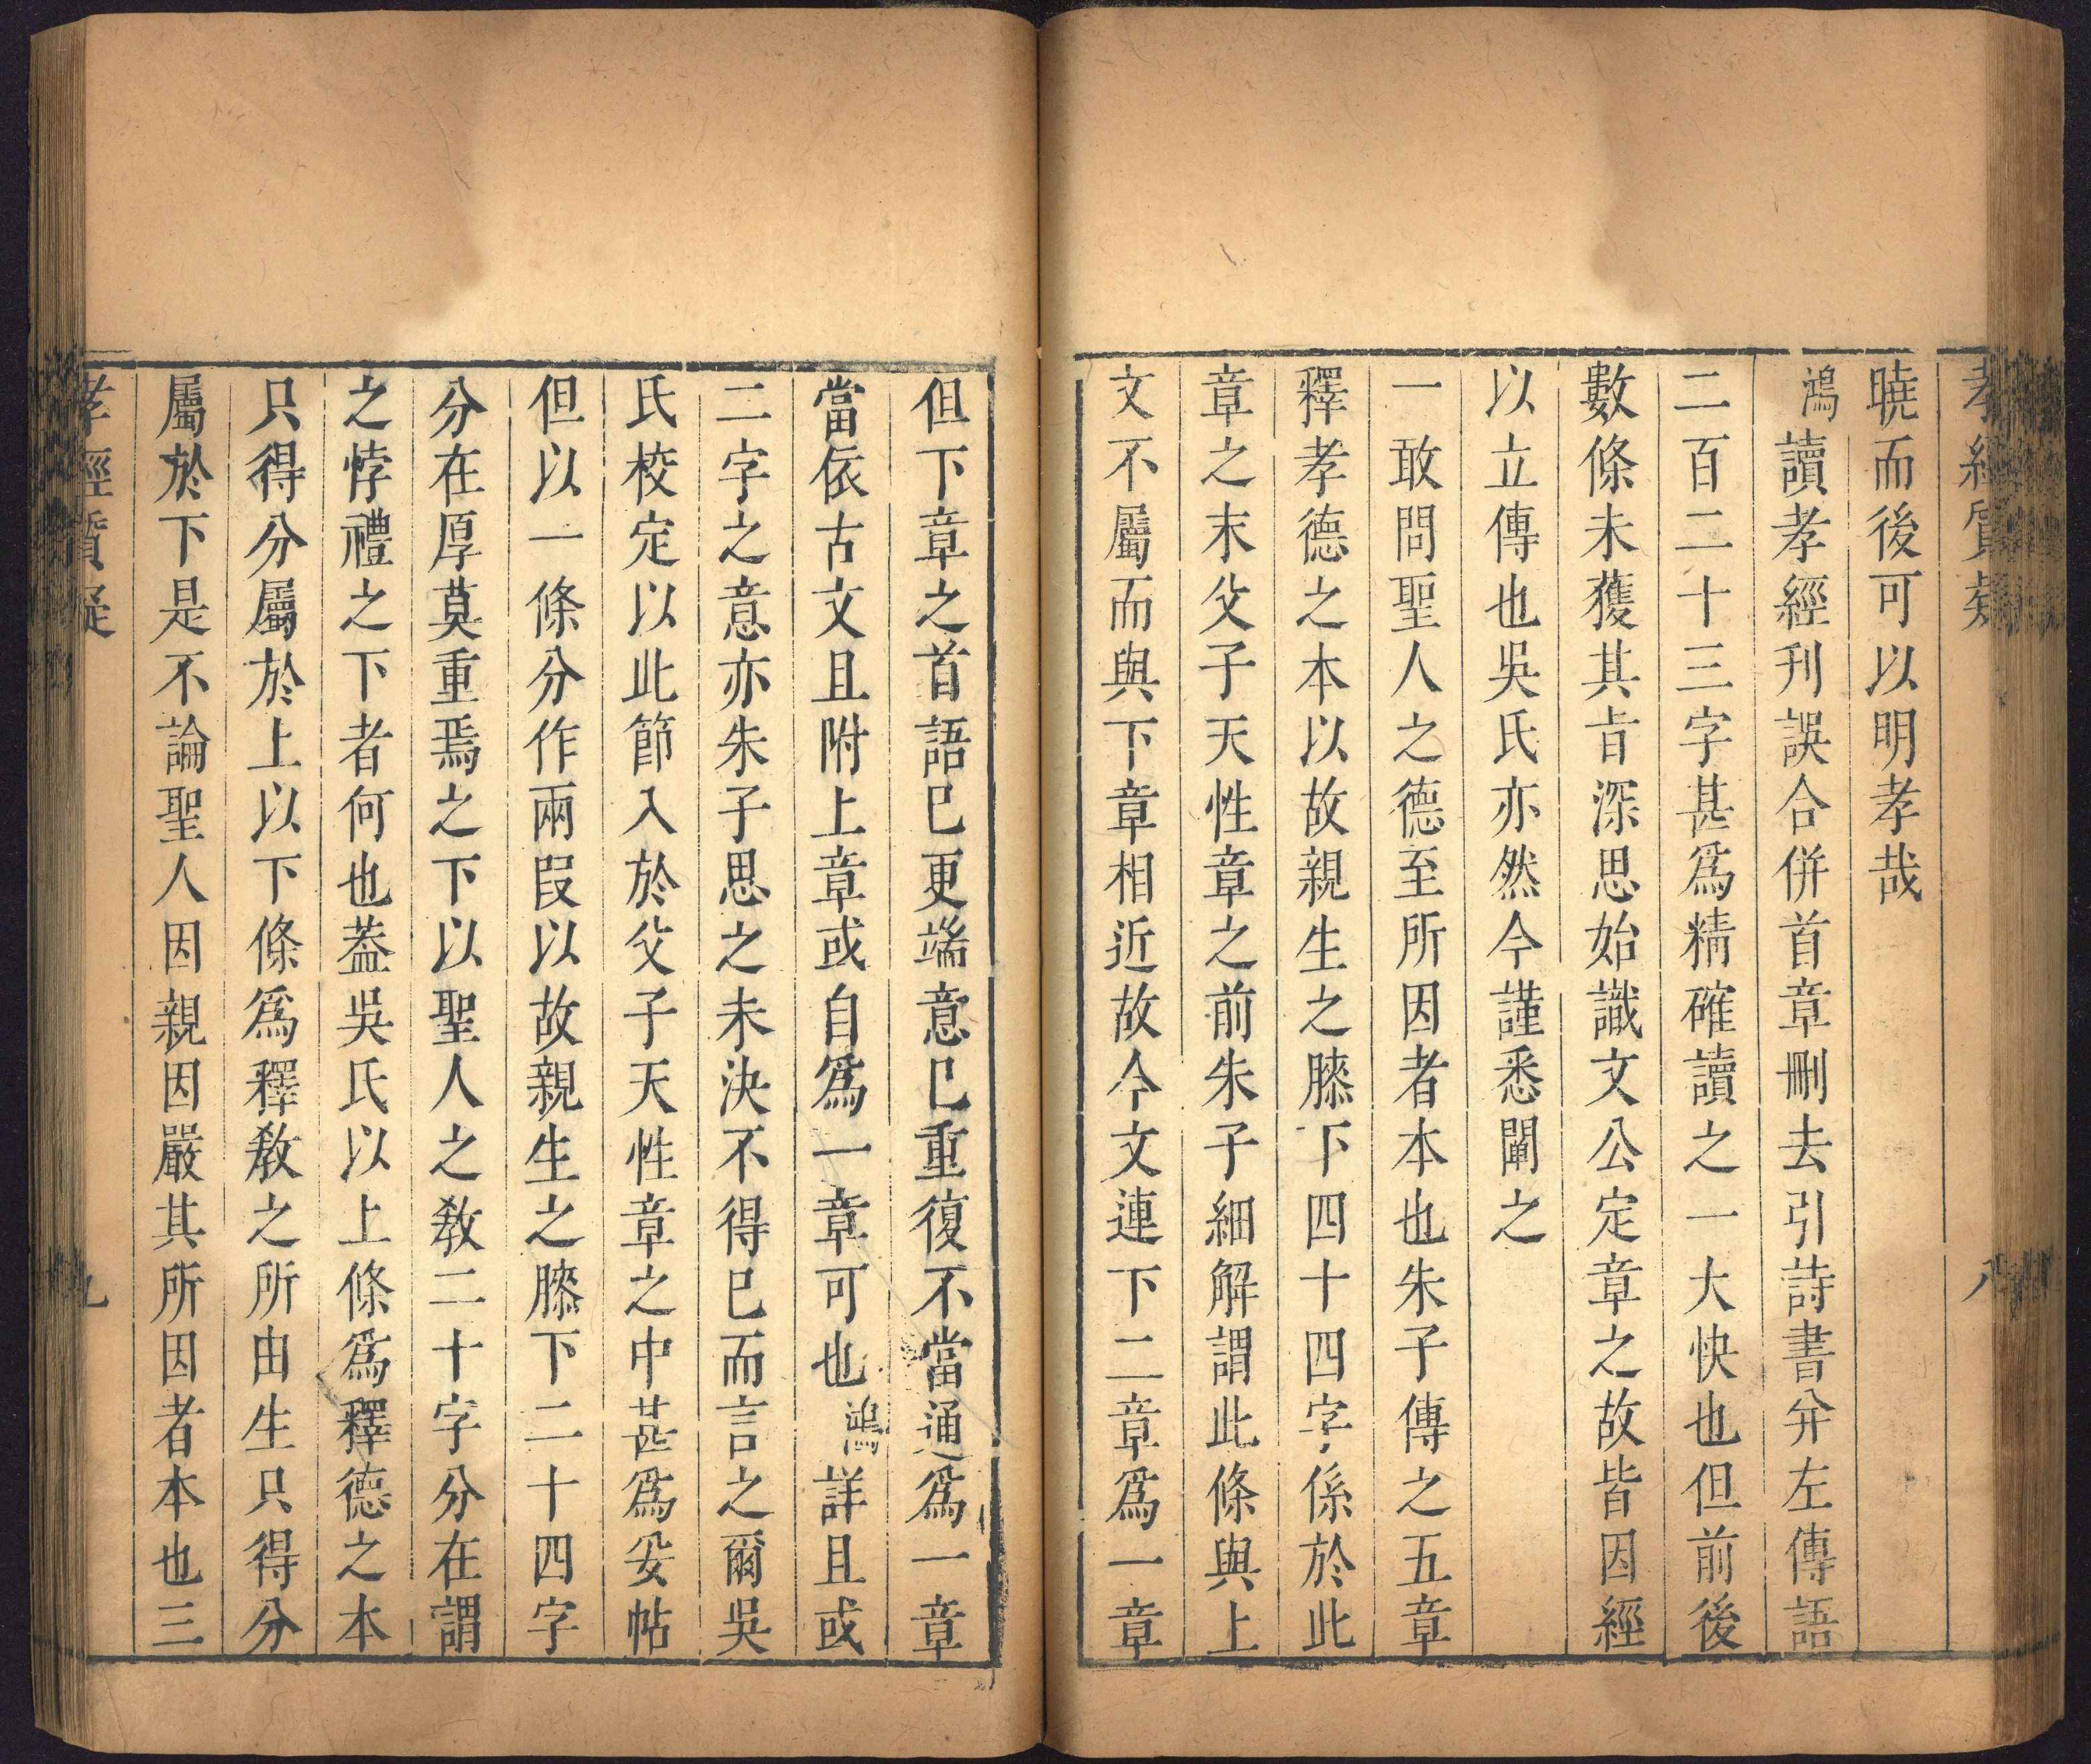 孝經質疑 八
曉而後可以明孝哉
鴻讀孝經刊誤合併首章刪去引詩書分左傳語
二百二十三字甚爲精確讀之一大快也但前後
數條未獲其旨深思始識文公定章之故皆因經
以立傳也吳氏亦然今謹悉闡之
一敢問聖人之德至所因者本也朱子傳之五章
釋孝德之本以故親生之膝下四十四字係於此
章之末父子天性章之前朱子細解謂此條與上
文不屬而與下章相近故今文連下二章爲一章
但下章之首語已更端意已重復不當通爲一章
當依古文且附上章或自爲一章可也鴻詳且或
二字之意亦朱子思之未決不得已而言之爾吳
氏校定以此節入於父子天性章之中甚爲妥帖
但以一條分作兩段以故親生之膝下二十四字
分在厚莫重焉之下以聖人之教二十字分在謂
之悖禮之下者何也蓋吳氏以上條爲釋德之本
只得分屬於上以下條爲釋教之所由生只得分
屬於下是不論聖人因親因嚴其所因者本也三
孝經質疑 九